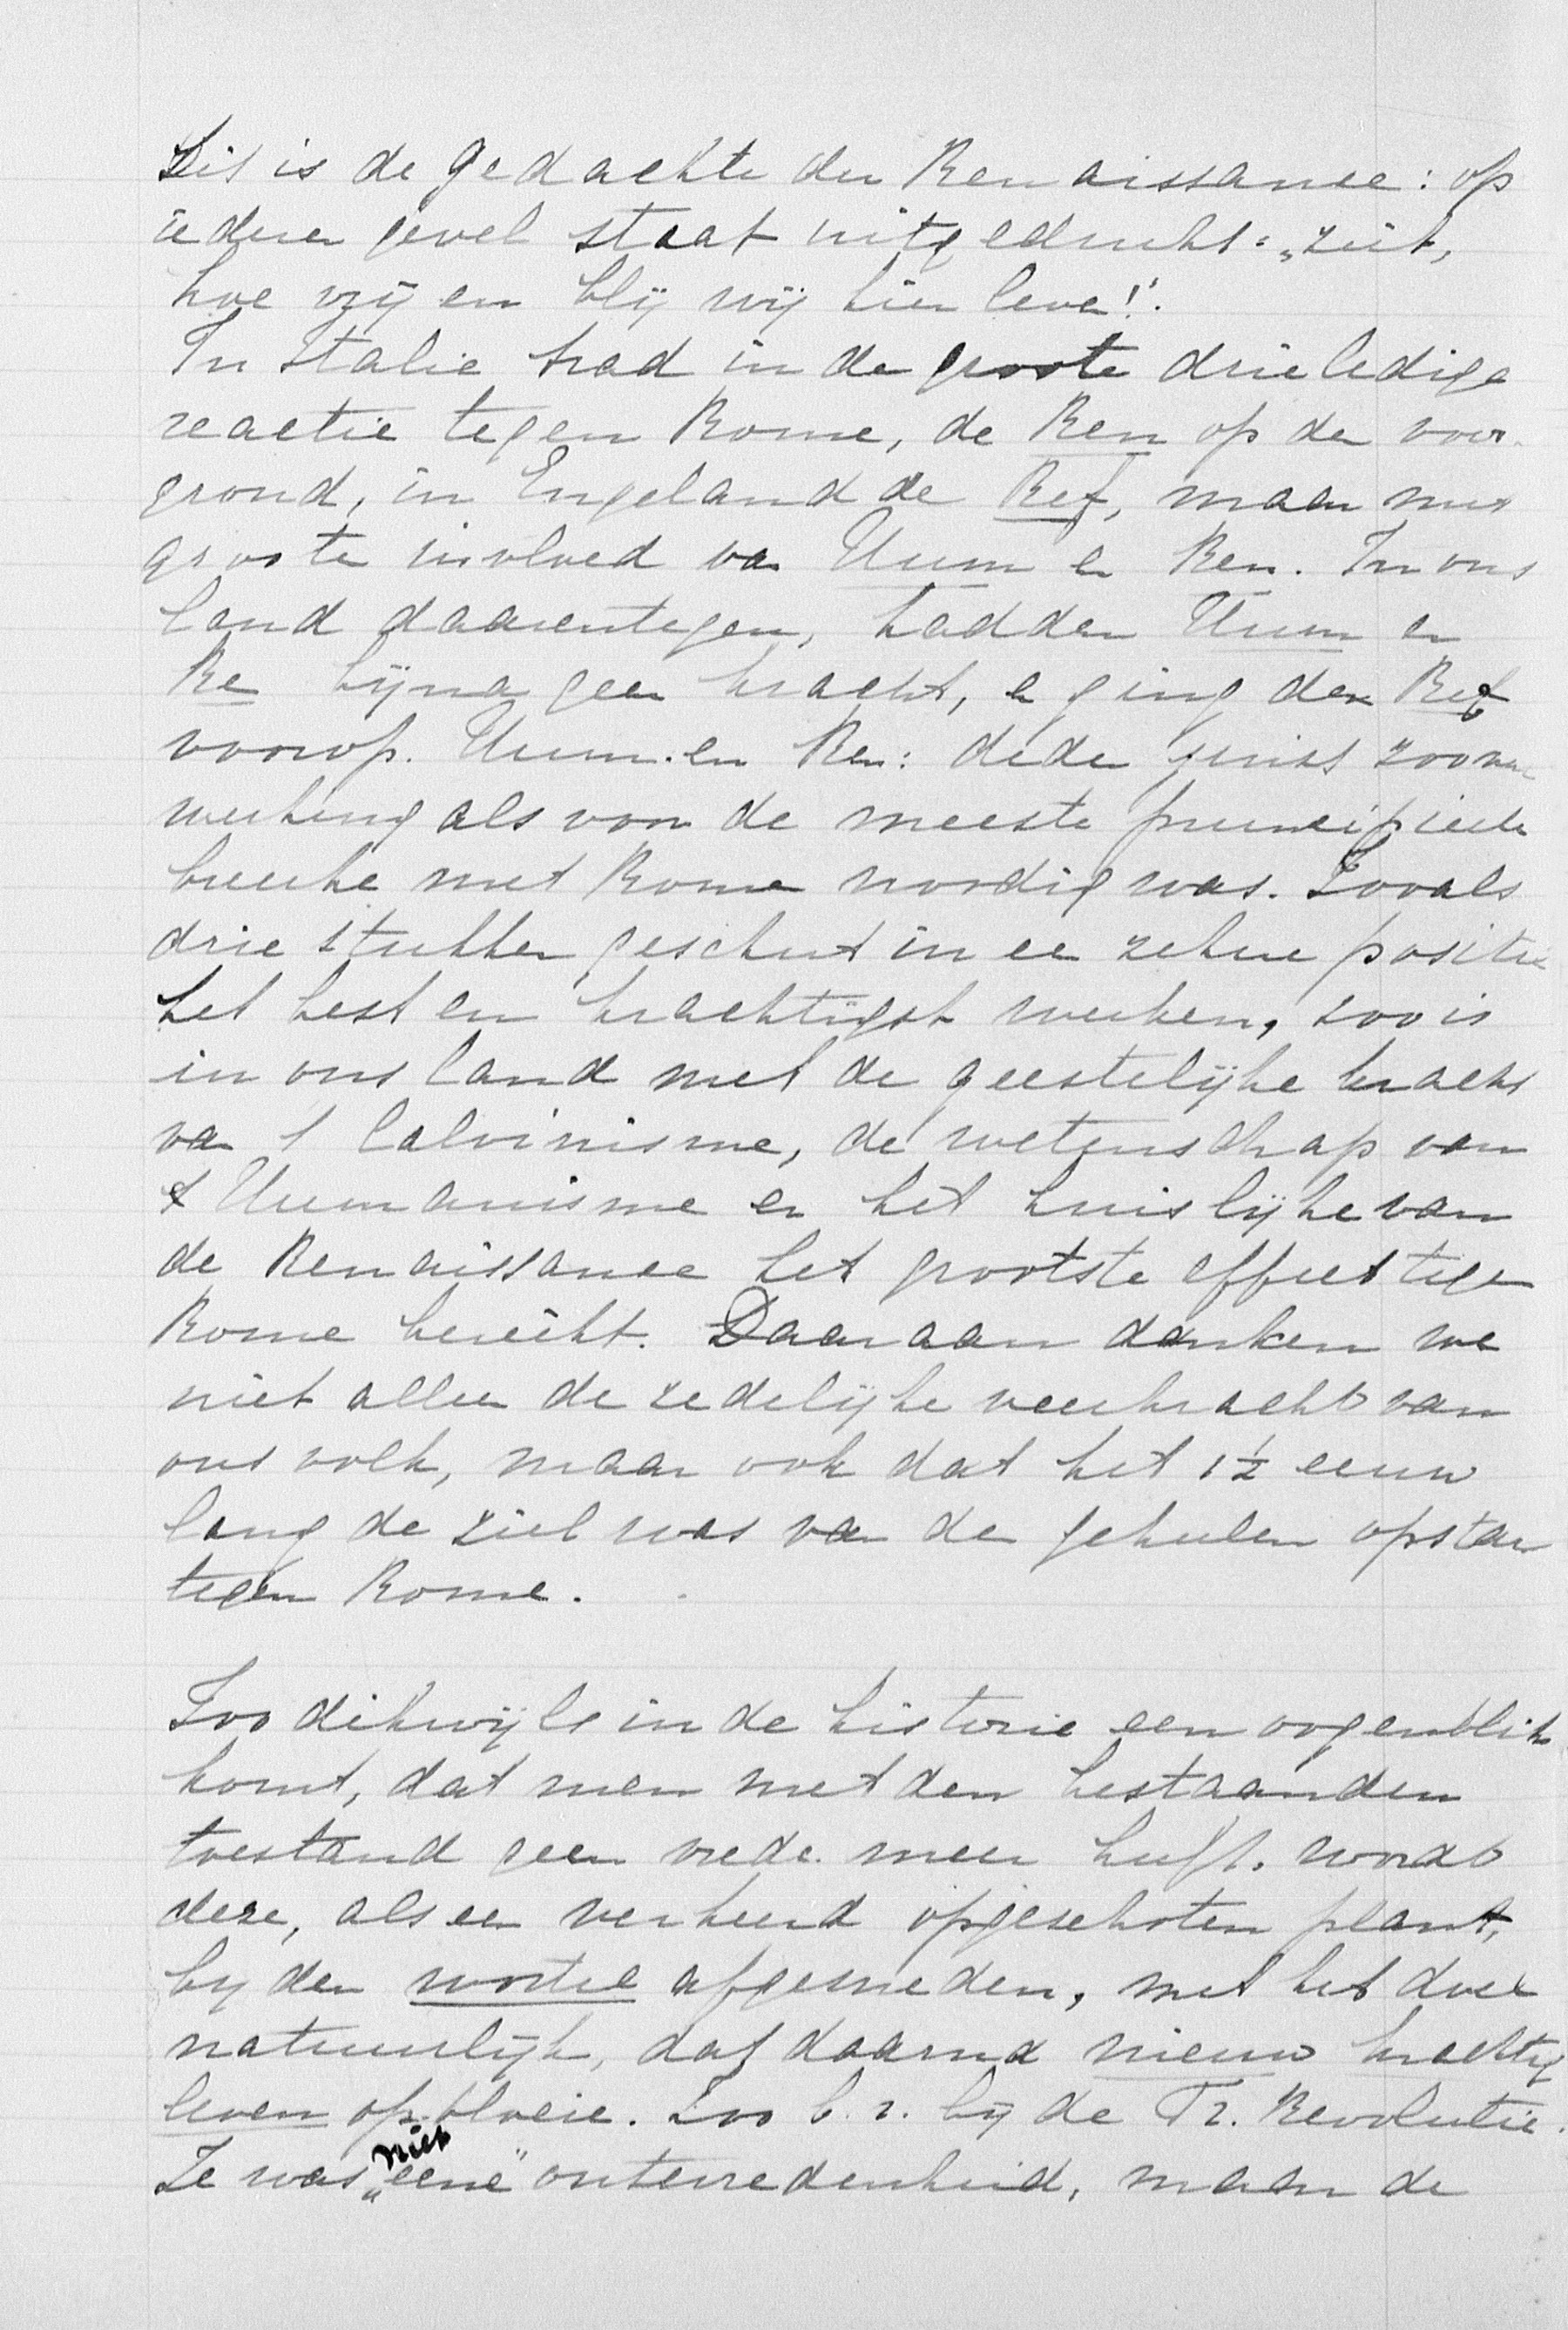 Dit is de gedachte der Renaissance: op
iederen gevel staat uitgedrukt: „ziet,
hoe vrij en blij wij hier leven!".
In Italie trad in de groote drieledige
reactie tegen Rome, de Ren op de voor-
grond, in Engeland de Ref, maar met
groote invloed van Hum en Ren. In ons
land daarentegen, hadden Hum en
Re bijna geen kracht, en ging der Ref
voorop. Hum. en Ren: deden juist zooveel
werking als voor de meeste principieele
breuke met Rome noodig was. Zooals
drie stukken geschut in een zekere positie
het best en krachtigst werken, zoo is
in ons land met de geestelijke kracht
van t Calvinisme, de wetenschap van
t Humanisme en het huislijke van
de Renaissance het grootste effect tegen
Rome bereikt. Daaraan danken we
niet alleen de zedelijke veerkracht van
ons volk, maar ook dat het 1½ eeuw
lang de ziel was van de geheelen opstan
tegen Rome.
Zoo dikwijls in de historie een oogenblik
komt, dat men met den bestaanden
toestand geen vrede meer heeft, wordt
deze, als een verkeerd opgeschoten plant,
by den wortel afgesneden, met het doel
natuurlijk, dat daarna nieuw krachtig
leven op bloeie. Zoo b.v. bij de Fr. Revolutie.
Ze was niet „eene" ontevredenheid, maar de